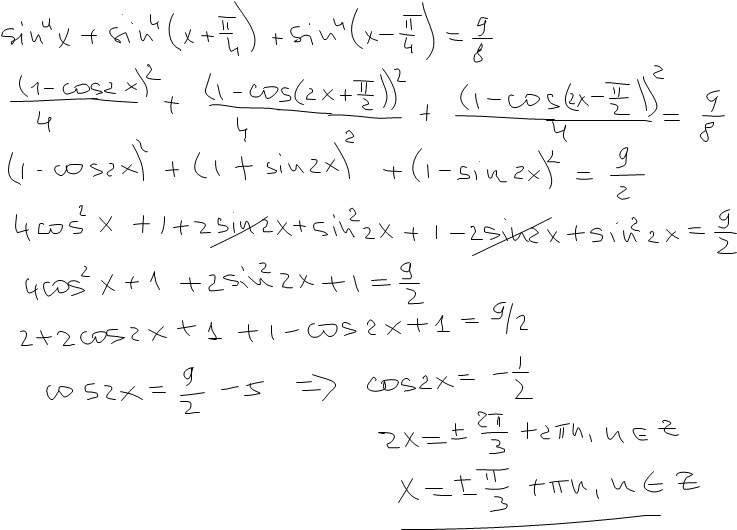 sin⁴x + sin⁴(x + π/4) + sin⁴(x − π/4) = 9/8
(1 − cos2x)²/4 + (1 − cos(2x + π/2))²/4 + (1 − cos(2x − π/2))²/4 = 9/8
(1 − cos2x)² + (1 + sin2x)² + (1 − sin2x)² = 9/2
4cos²x + 1 + 2sin2x + sin²2x + 1 − 2sin2x + sin²2x = 9/2
4cos²x + 1 + 2sin²2x + 1 = 9/2
2 + 2cos2x + 1 + 1 − cos2x + 1 = 9/2
cos2x = 9/2 − 5 ⇒ cos2x = −1/2
2x = ± 2π/3 + 2πn, n ∈ Z
x = ± π/3 + πn, n ∈ Z